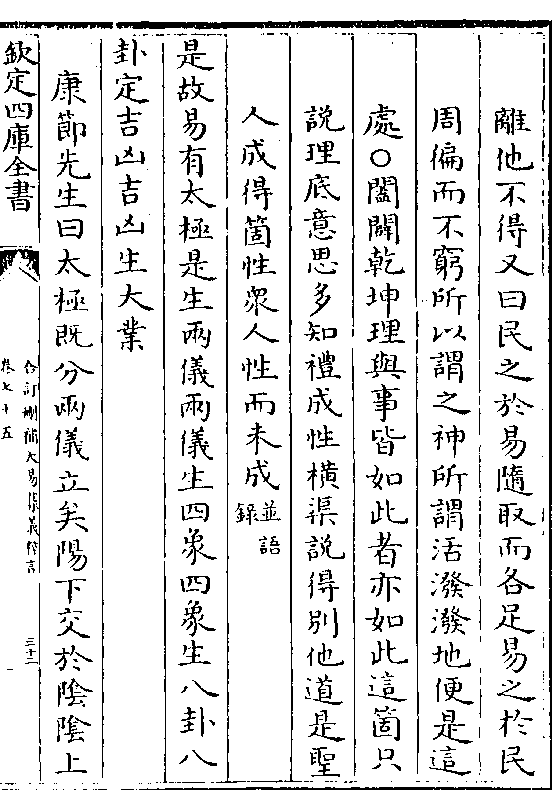 離他不得又曰民之於易隨取而各足易之於民
周徧而不窮所以謂之神所謂活潑潑地便是這
處○闔闢乾坤理與事皆如此者亦如此這箇只
說理底意思多知禮成性橫渠說得別他道是聖
人成得箇性衆人性而未成並語錄
是故易有太極是生兩儀兩儀生四象四象生八卦八
卦定吉凶吉凶生大業
康節先生曰太極既分兩儀立矣陽下交於陰陰上
欽定四庫全書
合訂刪補大易集義粹言
卷七十五
三十二